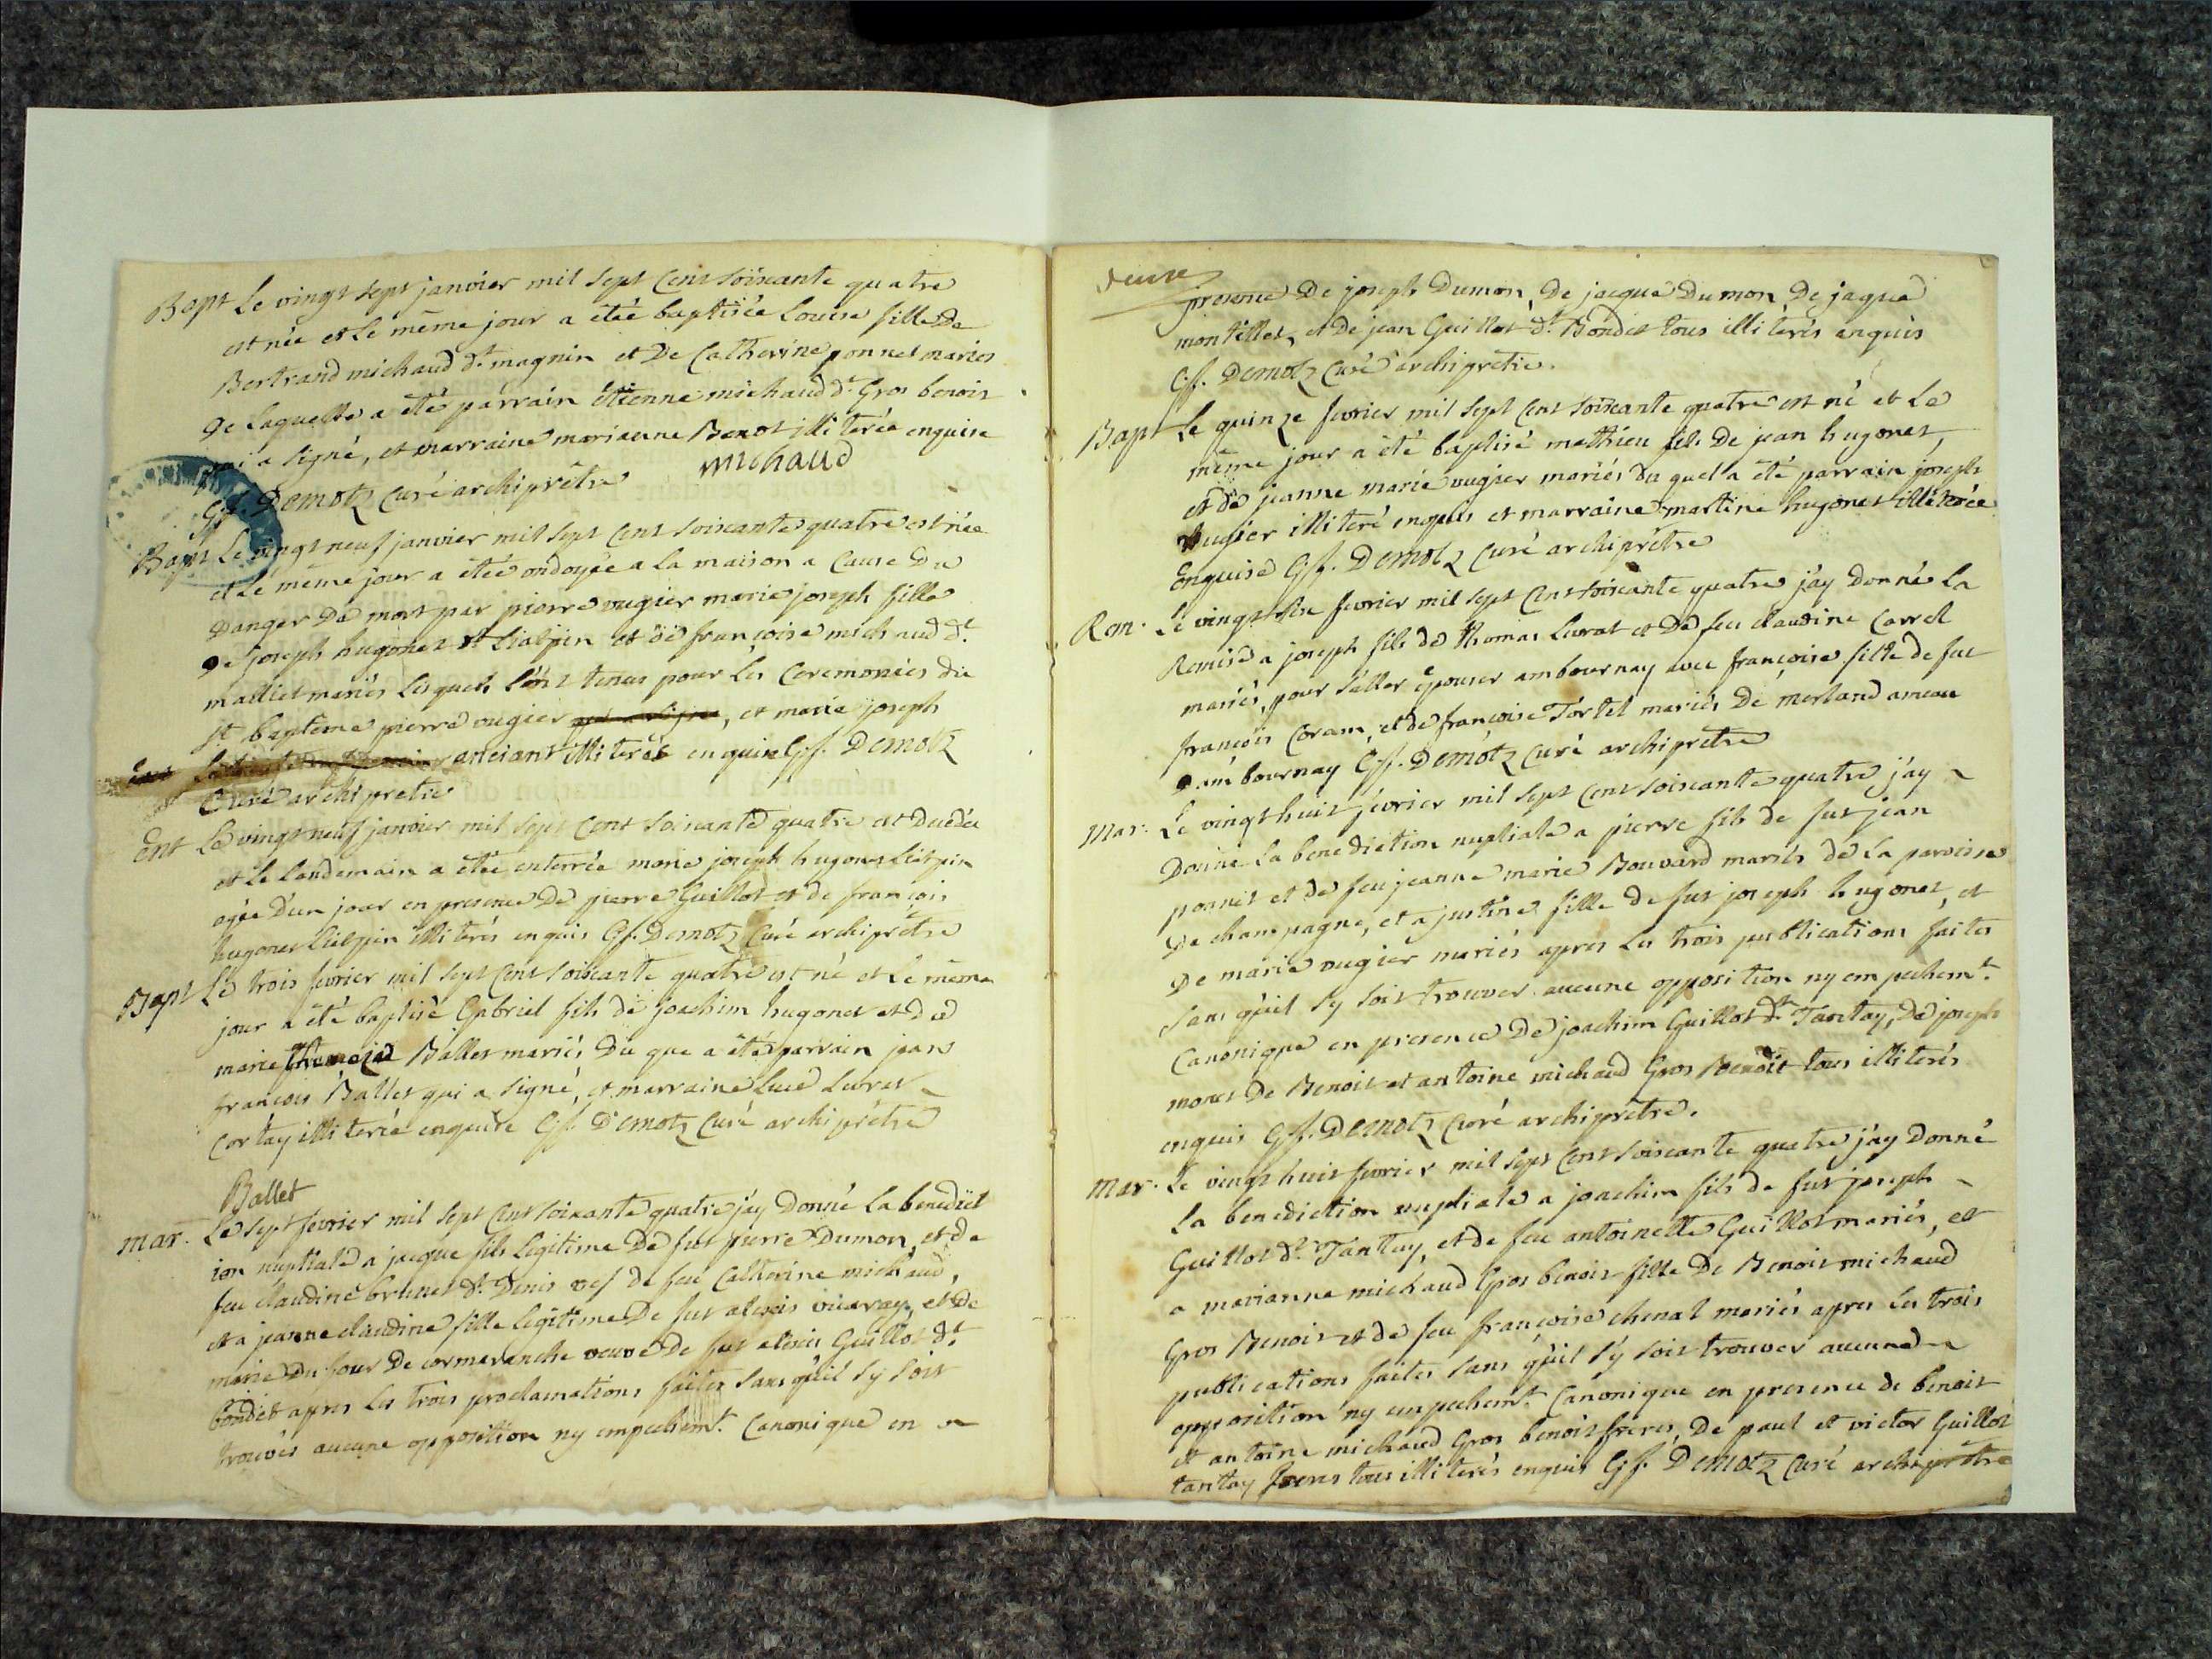 Bapt Le vingt sept janvier mil sept Cent soixante quatre
est née et Le même jour a étéé baptisée Louise fille de
Bertrand michaud dt. magnin et De Catherine ponnet mariés
De Laquelle a été parrain étienne michaud dt. Gros benoit
qui a signé, et marraine marianne Benot illiterée enquise
michaud
Gf. Demotz Curé archiprêtre
Bapt Le vingt neuf janvier mil sept Cent soixante quatre est née
et Le même jour a étéé ondoyée a La maison a Cause Du
Danger De mort par pierre vugier marie joseph fille
De joseph hugonet dt Lialpin et De françoise michaud dt.
maillet mariés Lesquels L'ont tenus pour Les Ceremonies du
st baptême pierre vugier, et marie joseph
anciant illiterés enquis Gf. Demotz
Curé archipretre
Ent Le vingt neuf janvier mil sept Cent soixante quatre est Decedée
et Le Landemain a étéé enterrée marie joseph hugonet Lialpin
agée D'un jour en presence De pierre Guillot et de françois
hugonet Lialpin illiterés enquis Gf. Demotz Curé archiprêtre
Bapt Le trois fevrier mil sept Cent soixante quatre est né et Le même
jour a été baptisé Gabriel fils de joachim hugonet et de
marie Ballet mariés Du que a été parrain jean
françois Ballet qui a signé, et marraine Luce Lurat
Cortay illiterée enquise Gf. Demotz Curé archiprêtre
Ballet
Mar. Le sept fevrier mil sept Cent soixante quatre j'ay Donné La benedict
ion nuptiale a jacque fils Legitime De fut pierre Dumon, et de
feu claudine brunet dt. Denis vef de feu Catherine michaud,
et a jeanne claudine fille Legitime De fut alexis vicaray, et de
marie Du four De cormaranche veuve De fut alexis Guillot dt.
bondet apres Les trois proclamations faites sans qu'il s'y soit
trouvés aucune opposition ny empechemt. Canonique en
presence De joseph Dumon, De jacque Dumon, De jaque
montillet, et De jean Guillot dt. Bondet tous illiterés enquis
Gf. Demotz Curé archipretre.
Bapt Le quinze fevrier mil sept Cent soixante quatre est né et Le
même jour a été baptisé mathieu fils De jean hugonet,
et de jeanne marie vugier mariés du quel a été parrain joseph
vugier illiteré enquis et marraine martine hugonet illiterée
Enquise Gf. Demotz Curé archiprêtre
Rem. Le vingt fevrier mil sept Cent soixante quatre j'ay Donné La
Remise a joseph fils de thomas Lurat et De feu claudine Carrel
mariés, pour s'aller épouser ambournay avec françoise fille de fut
françois Coram, et de françoise Tortel mariés De merland ameau
D'ambournay Gf. Demotz Curé archipretre
Mar. Le vingt huit fevrier mil sept Cent soixante quatre j'ay
Donné La benediction nuptiale a pierre fils de fut jean
ponnet et de feu jeanne marie Bouvard mariés de La paroisse
De champagne, et a justine fille de fut joseph hugonet, et
De marie vugier mariés apres Les trois publications faites
sans qu'il s'y soit trouver aucune opposition ny empechemt.
Canonique en presence De joachim Guillot dt. Tantay, De joseph
monet De Benoit et antoine michaud Gros Benoit tous illiterés
enquis Gf. Demotz Curé archiprêtre.
Mar. Le vingt huit fevrier mil sept Cent soixante quatre j'ay Donné
La benediction nuptiale a joachim fils de fut joseph
Guillot dt. Tantay, et de feu antoinette Guillot mariés, et
a marianne michaud Gros benoit fille De Benoit michaud
Gros Benoit et de feu françoise chenal mariés apres Les trois
publications faites sans qu'il s'y soit trouver aucune
opposition ny empechemt. Canonique en presence de benoit
et antoine michaud Gros benoit freres, De paul et victor Guillot
tantay freres tous illiterés enquis Gf. Demotz Curé archiprêtre